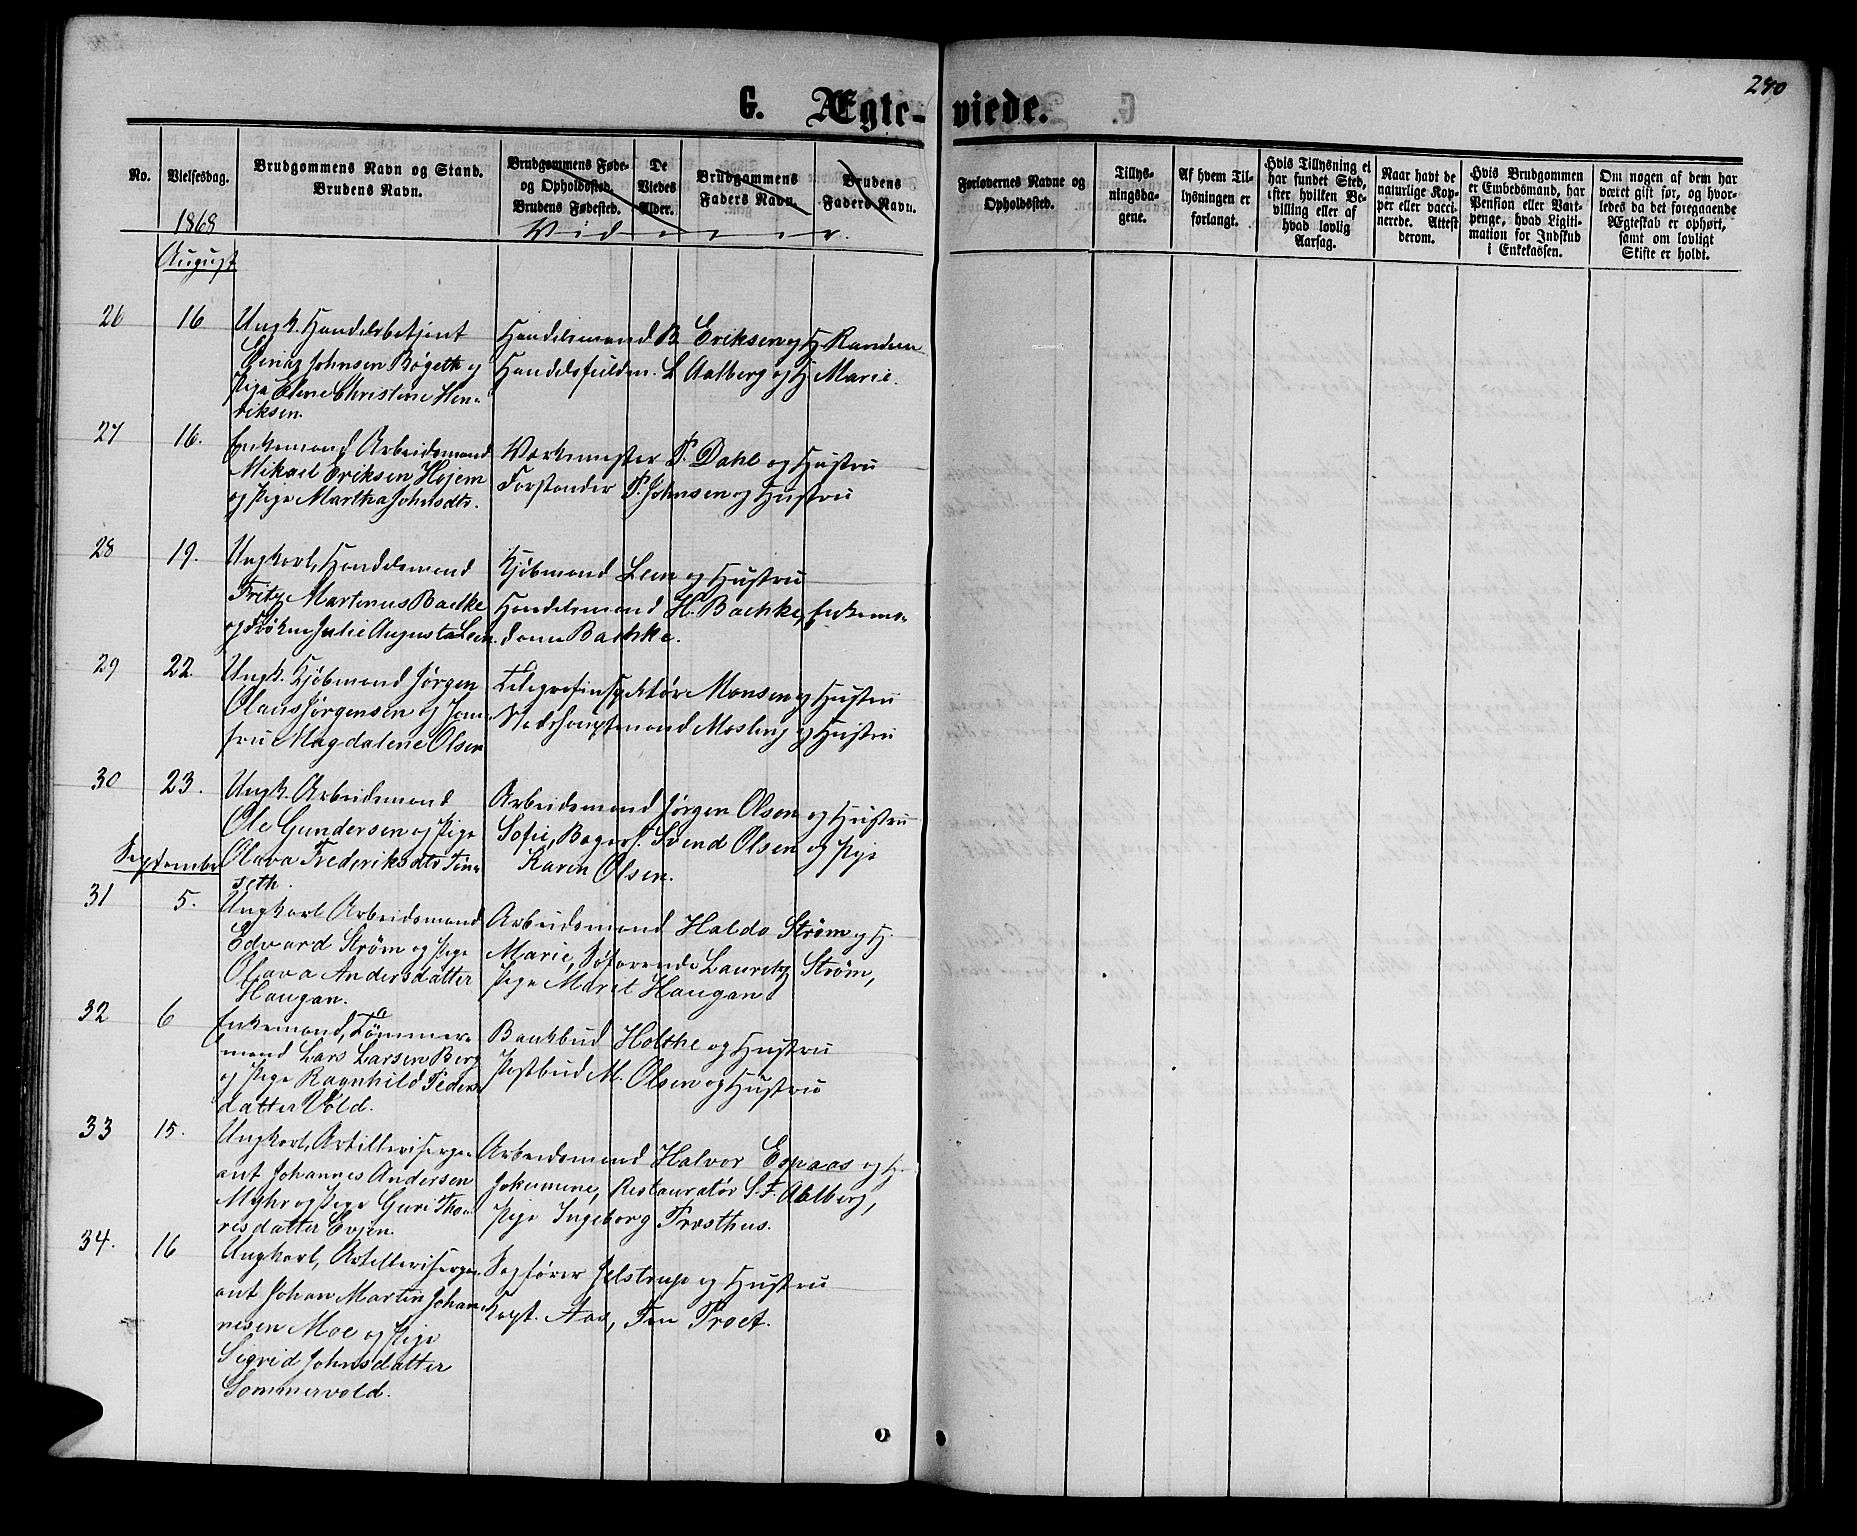 240
G. Ægte-viede.
No.
Vielsesdag.
Brudgommens Navn og Stand.
Brudens Navn.
Brudgommens Føde-
og Opholdssted.
Brudens Fødested.
De
Viedes
Alder.
Brudgommens
Faders Navn.
Brudens
Faders Navn.
Forlovernes Navne og
Opholdssted.
Tillys-
ningsda-
gene.
Af hvem Til-
lysningen er
forlangt.
Hvis Tillysning ei
har fundet Sted,
efter hvilken Be-
villing eller af
hvad lovlig
Aarsag.
Naar havt de
naturlige Kop-
per eller vacci-
nerede. Attest
derom.
Hvis Brudgommen
er Embedsmand, har
Pension eller Vart-
penge, hvad Ligiti-
mation for Indskud
i Enkekassen.
Om nogen af dem har
været gift før, og hvor-
ledes da det foregaaende
Ægteskab er ophørt,
samt om lovligt
Skifte er holdt.
1868
August
26 16 Ungk. Handelsbetjent
Johnsen Bøgeth og
Pige Christine Hen-
riksen.
Handelsmand B. Eriksen og H. Randine
Handelsfuldm. L Aalberg og H. Marie.
27 16. Enkemand Arbeidsmand
Mikael Eriksen Højem
og Pige Martha Johnsdtr.
Værkmester P. Dahl og Hustru
Forstander P. Johnsen og Hustru
28 19. Ungkarl, Handelsmand
Fritz Martinus Bachke
og Frøken Julie Augusta Lem.
Kjøbmand Lem og Hustru
Handelsmand H. Bachke, Enkema-
dame Bachke.
29 22. Ungk. Kjøbmand Jørgen
Olaus Jørgensen og Jom-
fru Magdalene Olsen
Telegrafinspektør Monsen og Hustru
Stadshauptmand Mosling og Hustru
30 23. Ungk. Arbeidsmand
Ole Gundersen og Pige
Olava Frederiksdtr
seth.
Arbeidsmand Jørgen Olsen og Hustru
Sofie, Bagers. Svend Olsen og Pige
Karen Olsen.
September
31 5. Ungkarl Arbeidsmand
Edvard Strøm og Pige
Olava Andersdatter
Haugan.
Arbeidsmand Haldo Strøm og H.
Marie, Søfarende Lauritz Strøm,
Pige Marit Haugan
32 6 Enkemand, Tømmer-
mand Lars Larsen Berg
og Pige Ragnhild Peders-
datter Vold.
Bankbud Holthe og Hustru
Postbud M. Olsen og Hustru
33 15. Ungkarl, Artillerisergea-
ant Johannes Andersen
Myhr og Pige Guri Tho-
risdatter Evjen.
Arbeidsmand Halvor Espaas og H.
Jokumine, Restauratør S. F. Aalberg,
Pige Ingeborg Præsthus.
34. 16 Ungkarl, Artillerisergea-
ant Johan Martin Johan-
nesen Moe og Pige
Sigrid Johnsdatter
Sommervold.
Sagfører Jelstrup og Hustru
Kapt. Aas, Frøet.